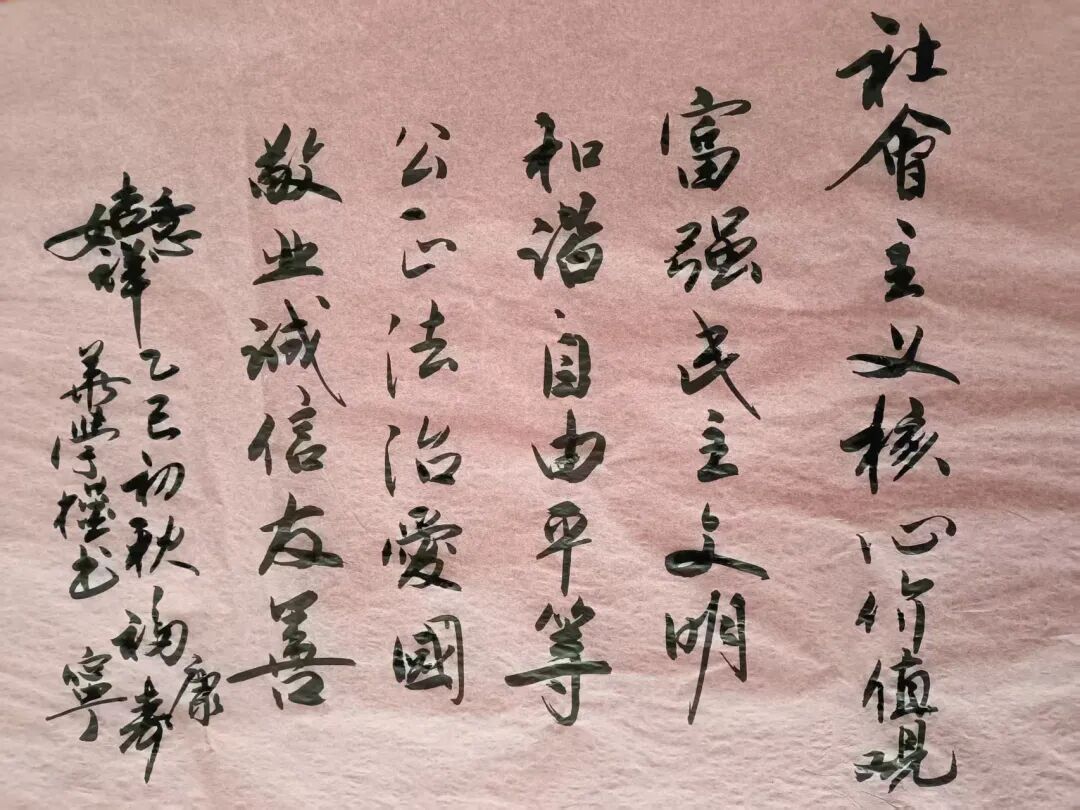 社會主义核心价值观
富强民主文明
和谐自由平等
公正法治愛國
敬业诚信友善
吉祥如意
乙巳初秋
书
福寿康宁